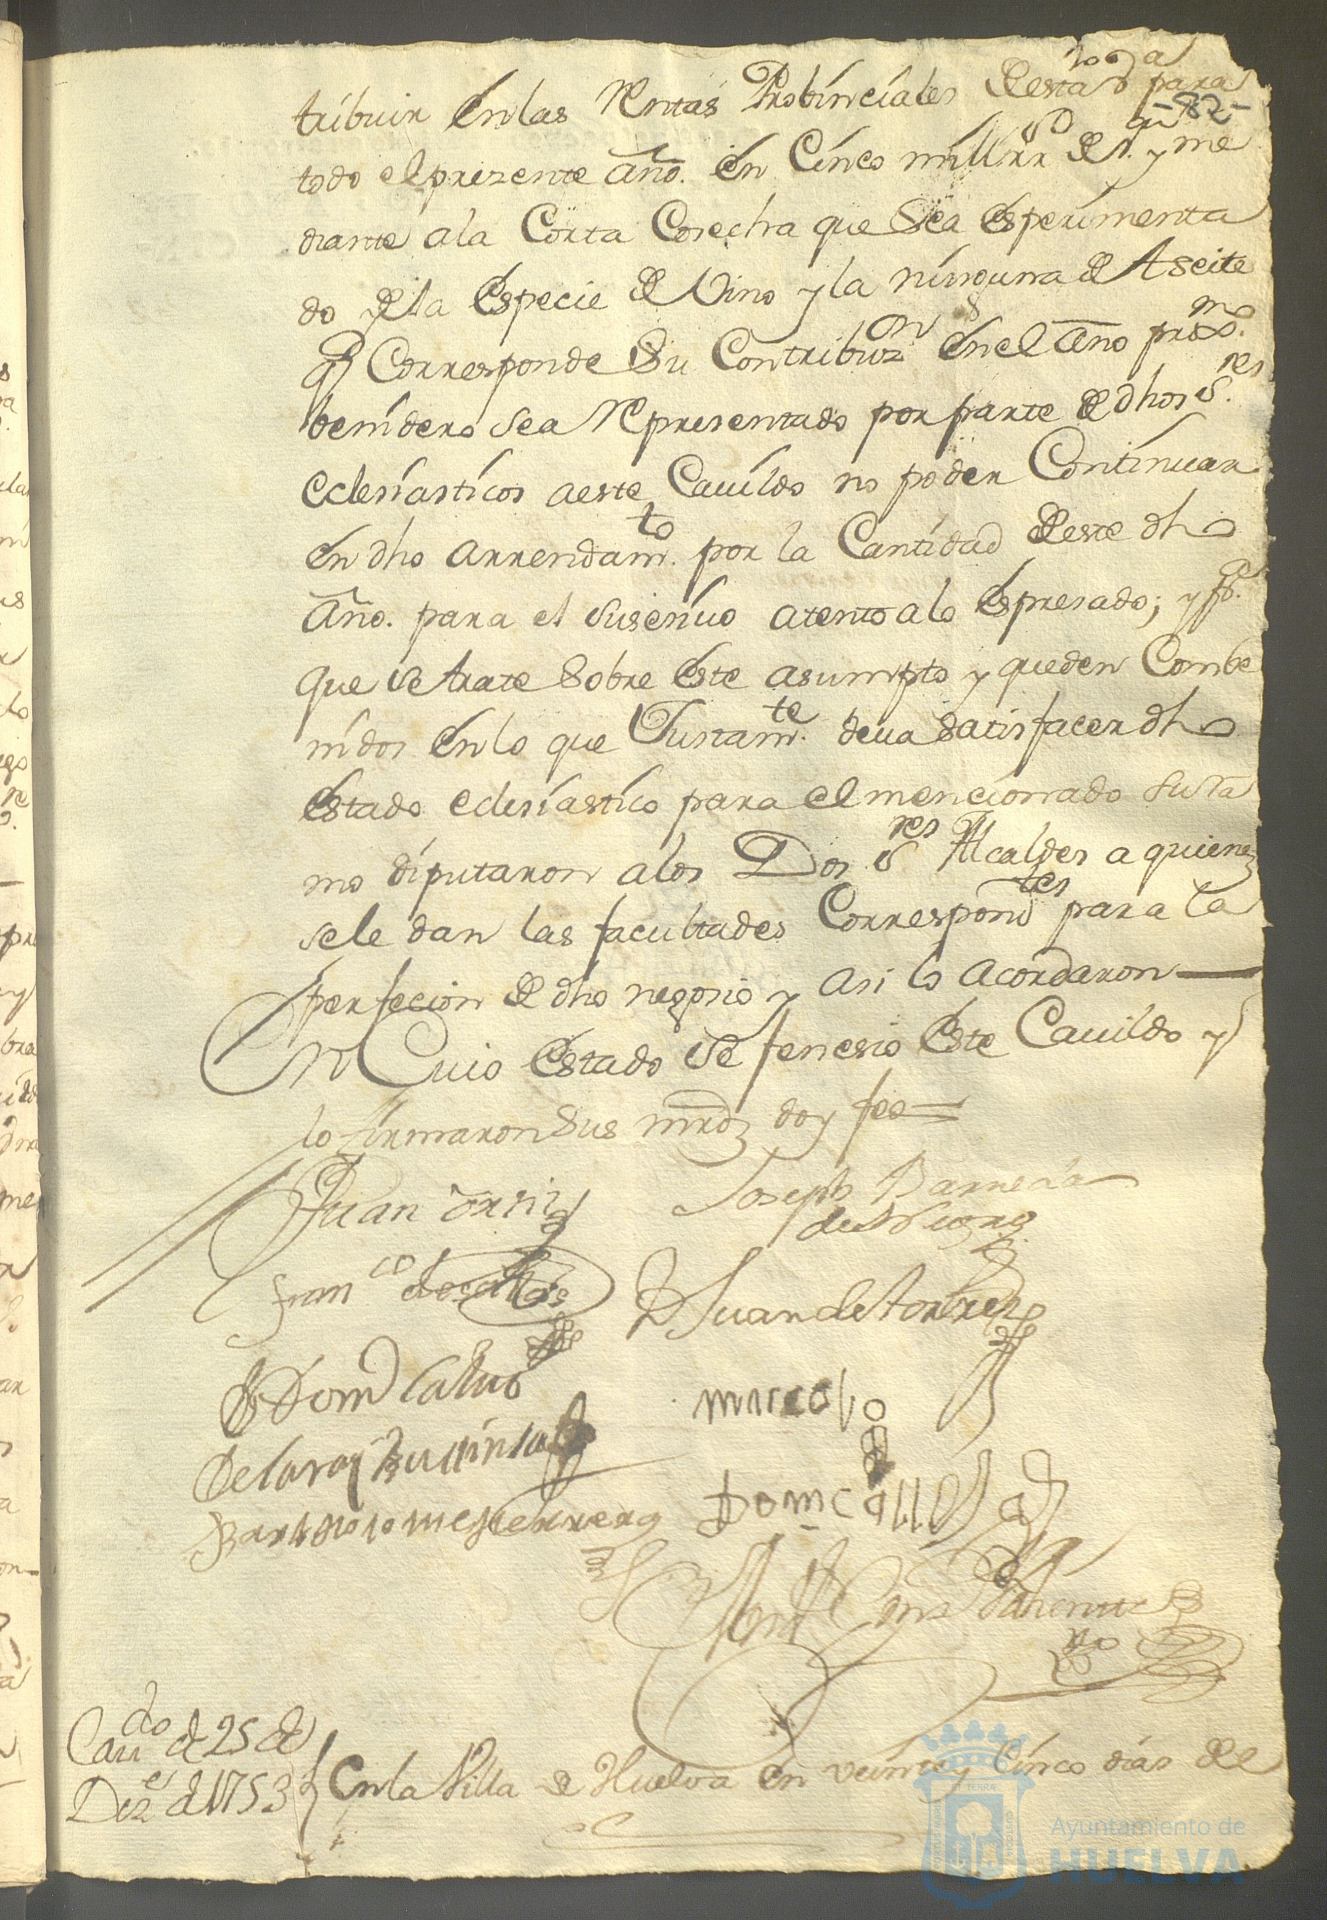 -82-
tribuir en las Rentas Probinciales de esta v.ª para
todo el prezente año. en Cinco mill rr.s de v.n y me
diante ala Corta Cosecha que sea esperimenta
do de la especie de Vino y la ninguna de Aseite
q Corresponde su Contribuz.on en el año prox.mo
benidero sea Representado por parte de dhos s.res
eclesiasticos a este Cauildo no poder Continuar
en dho arrendam.to por la Cantidad de este dho
Año. para el susesiuo atento alo espresado; y p.ª
que se trate sobre este asumpto y queden Combe
nidos en lo que Justam.te deua satisfacer dho
estado eclesiastico para el mencionado
mo diputaron alos Dos s.res Alcaldes a quienes
sele dan las facultades Correspond.tes para la
perfecion de dho negosio y asi lo acordaron
En Cuio estado se fenesio este Cauildo y
lo firmaron sus mrdz doy fee=
Juan Joseph Barreda
fran.co
D Juan de Torres
D Dom Calbo
de la
Bartolome Herrera
Cau.do de 25 de
Diz.e de 1753
En la Villa de Huelva en veinte y Cinco dias de el
Ayuntamiento de
HUELVA